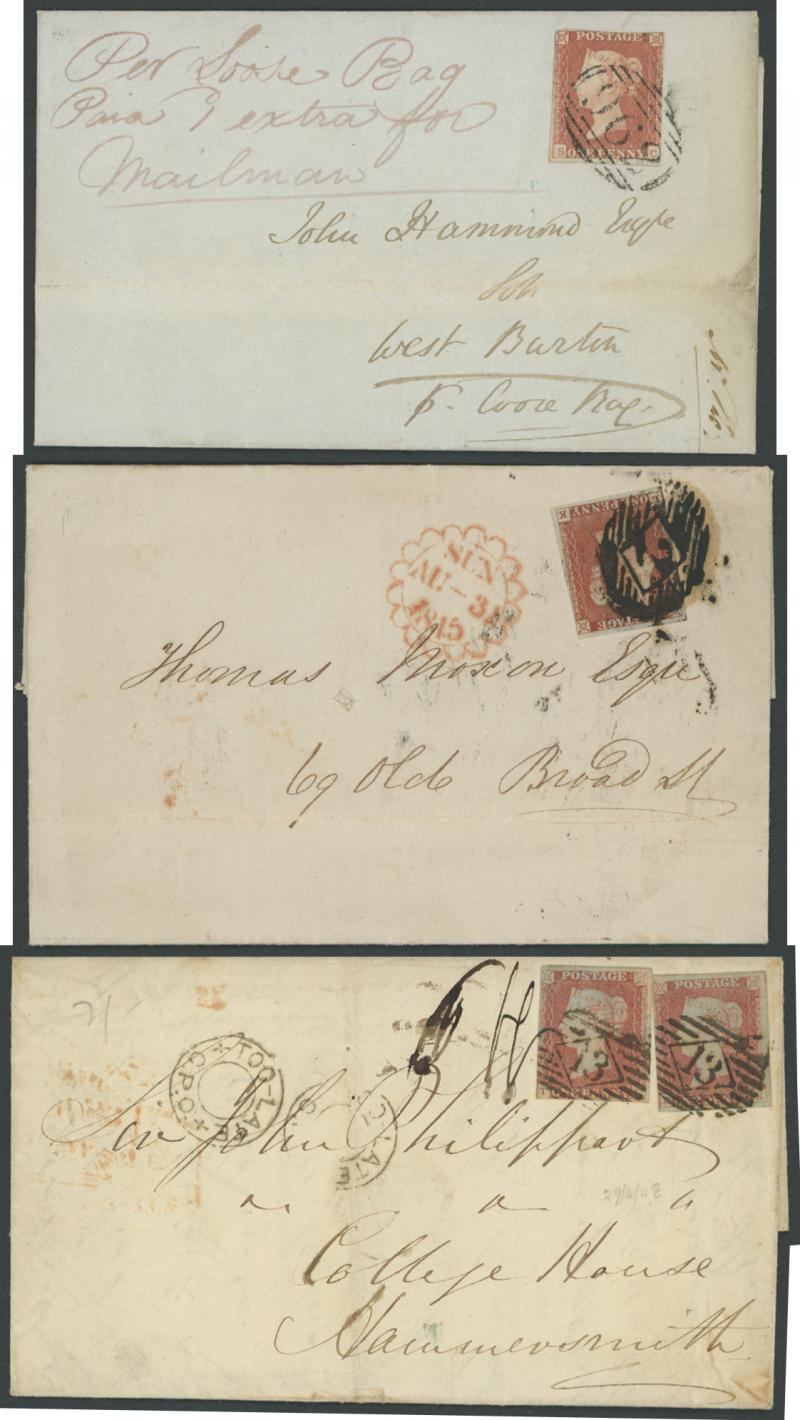 Per Loose Bag
Paid 1 extra for
Mailman
POSTAGE
S ONE PENNY C
John Hammond Esqre
West Burton
p. Coore Bag.
ONE PENNY K
SUN
AU - 31
1845
Thomas Moxon Esqre
69 Old Broad St
2/-
TOO-LATE
G.P.O.
LATE
POSTAGE
13
POSTAGE
13
Sir John Philippart
29/6/48
College House
Hammersmith